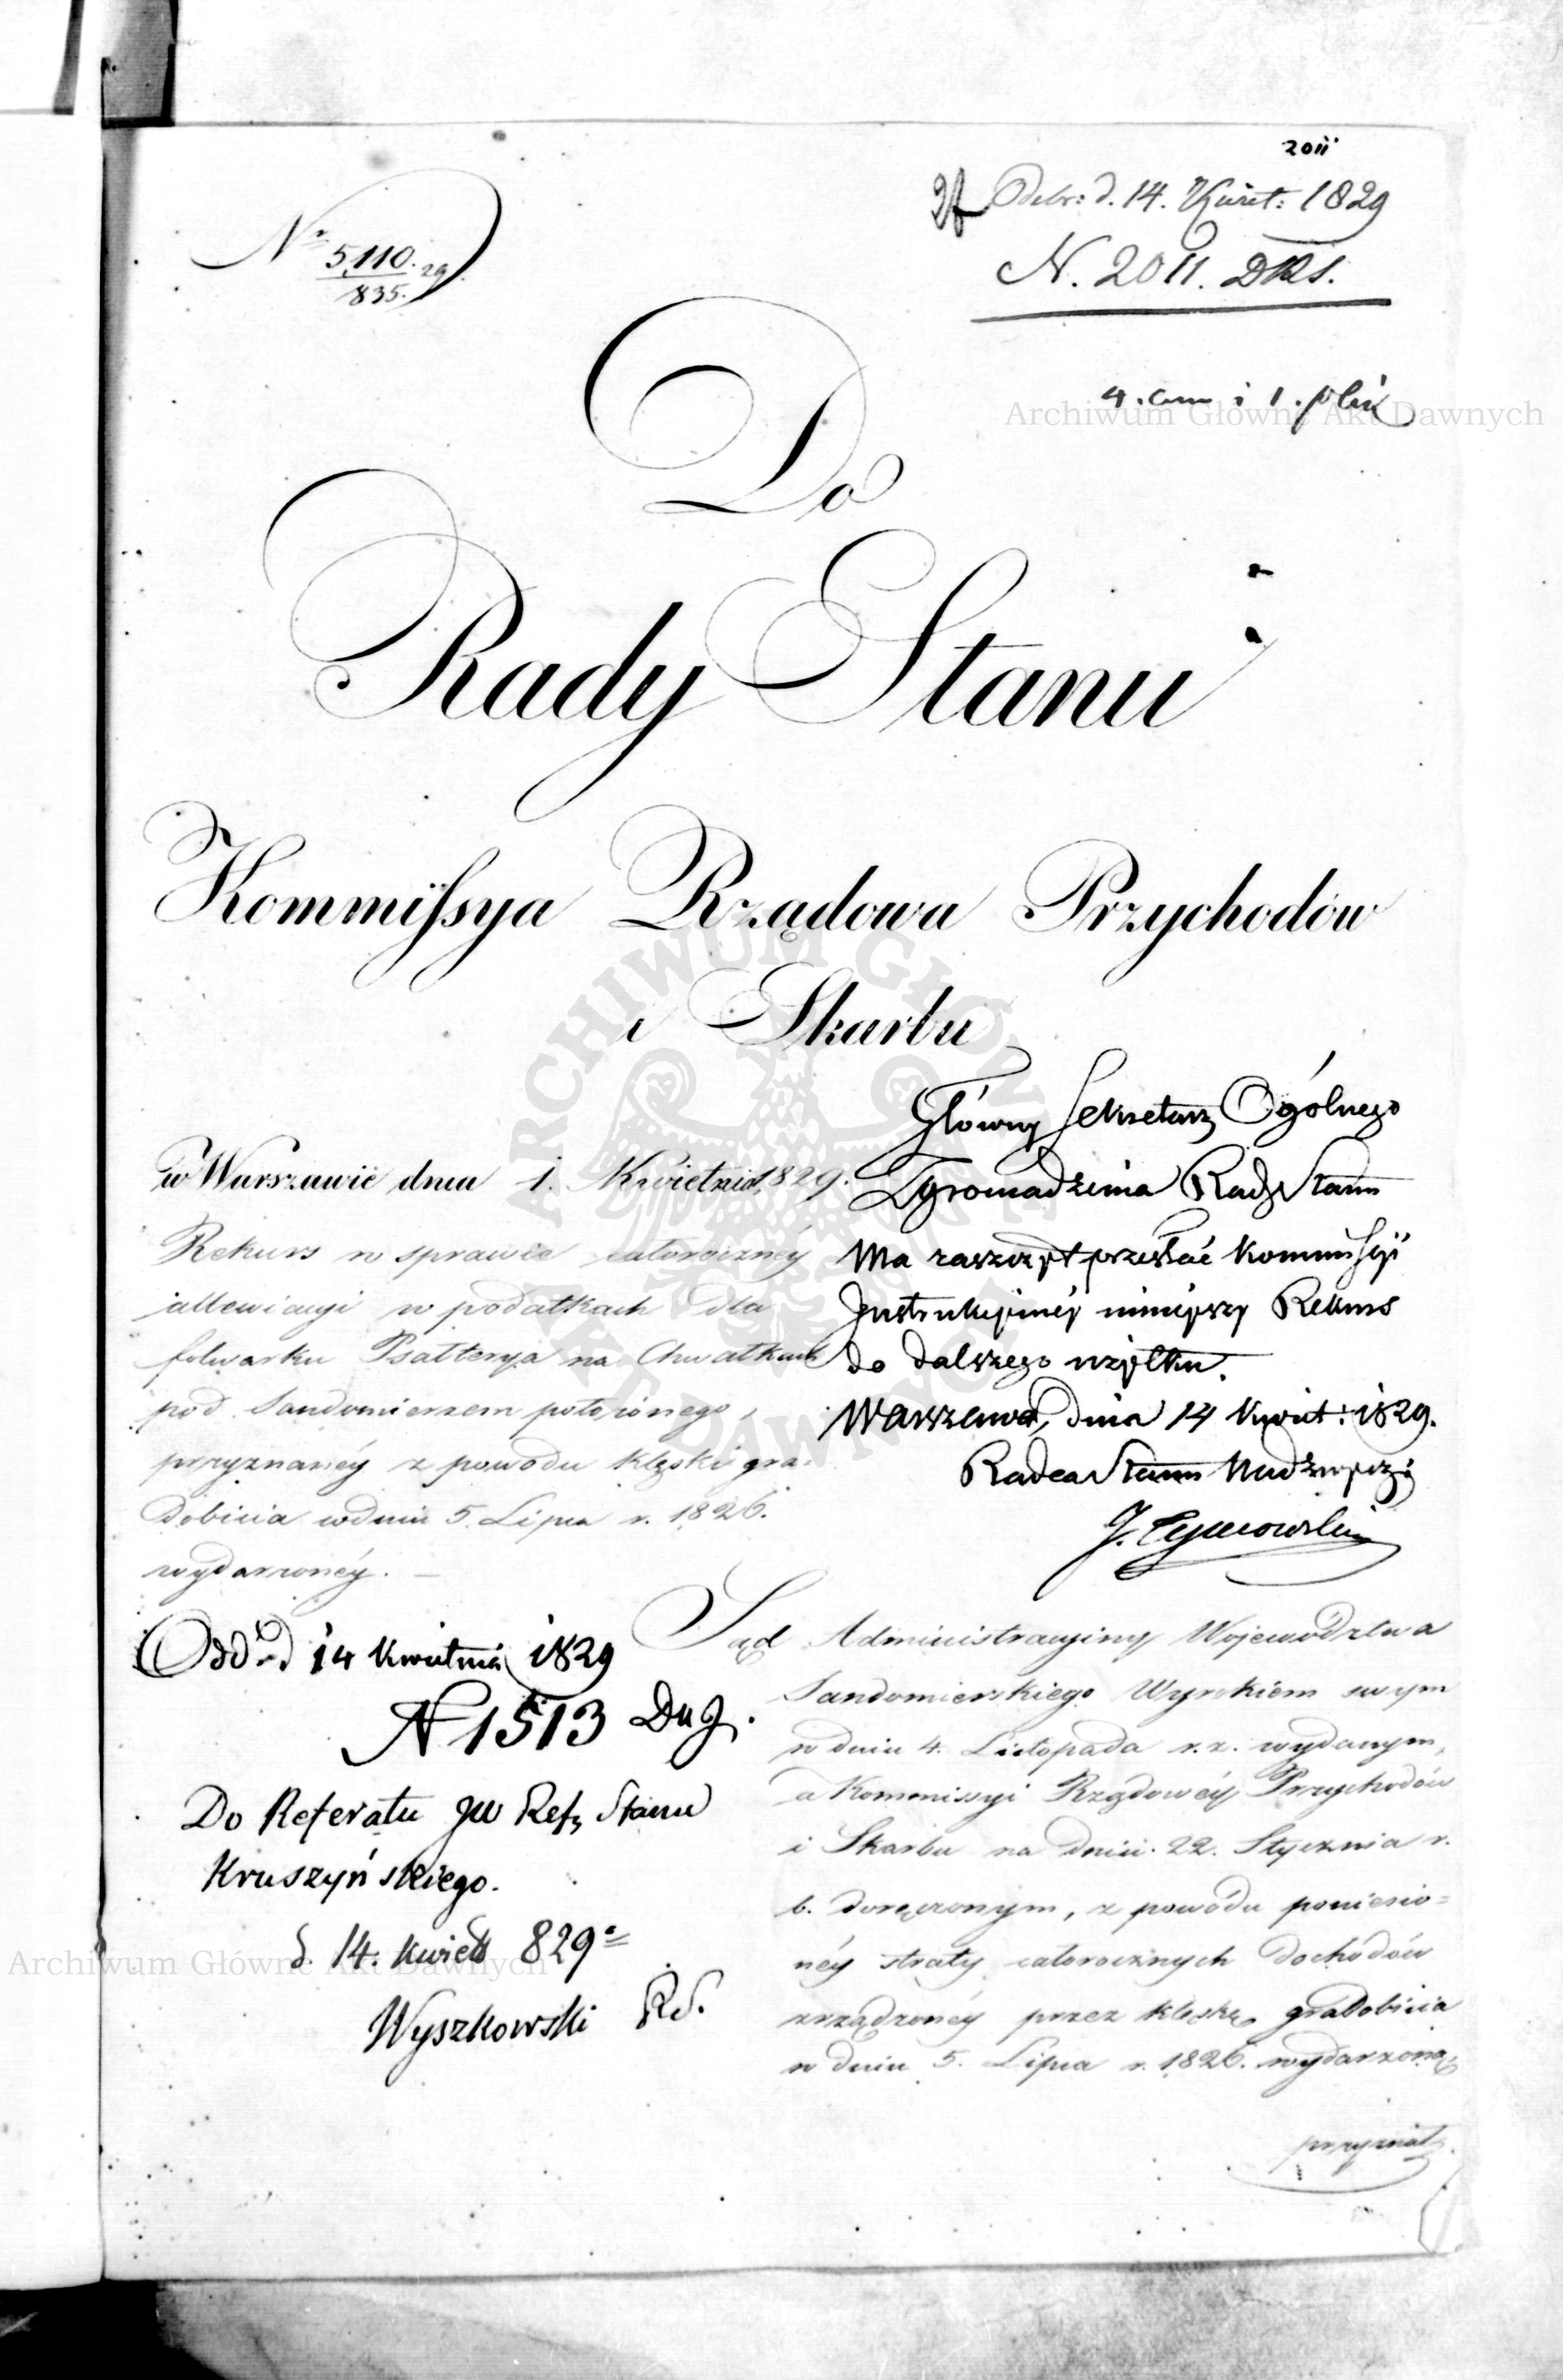 2011
Odebr: d. 14. Kwiet: 1829
N. 2011. DRS.
Nr 5,110. 29
835.
4. i 1.
Do
Rady Stanu
Kommissya Rządowa Przychodów
i Skarbu
w Warszawie dnia 1. Kwietnia 1829.
Rekurs w sprawie całorocznéy
allewiacyi w podatkach dla
folwarku Psałterya na Chwałkach
pod Sandomierzem położonego,
przyznanéy z powodu klęski gra-
dobicia w dniu 5. Lipca r. 1826.
wydarzonéy.
Główny Sekretarz Ogólnego
Zgromadzenia Rady Stanu
Ma zaszczyt przesłać Kommissyi
Instrukcyinéy ninieyszy Rekurs
do dalszego użytku.
Warszawa, dnia 14 Kwiet: 1829.
Radca Stanu Nadzwyczy
J. Tymowski
Odd d 14 Kwietnia 1829
N 1513
Do Referatu JW Ref. Stanu
Kruszyńskiego.
d. 14. Kwiet 829
Wyszkowski RS.
Sąd Administracyiny Województwa
Sandomierskiego Wyrokiem swym
w dniu 4. Listopada r. z. wydanym,
a Kommissyi Rządowéy Przychodów
i Skarbu na dniu 22. Stycznia r.
b. doręczonym, z powodu poniesio=
néy straty całorocznych dochodów
zrządzonéy przez klęskę gradobicia
w dniu 5. Lipca r. 1826. wydarzoną,
przyznał
Archiwum Główne Akt Dawnych
Archiwum Główne Akt Dawnych
ARCHIWUM GŁÓWNE AKT DAWNYCH